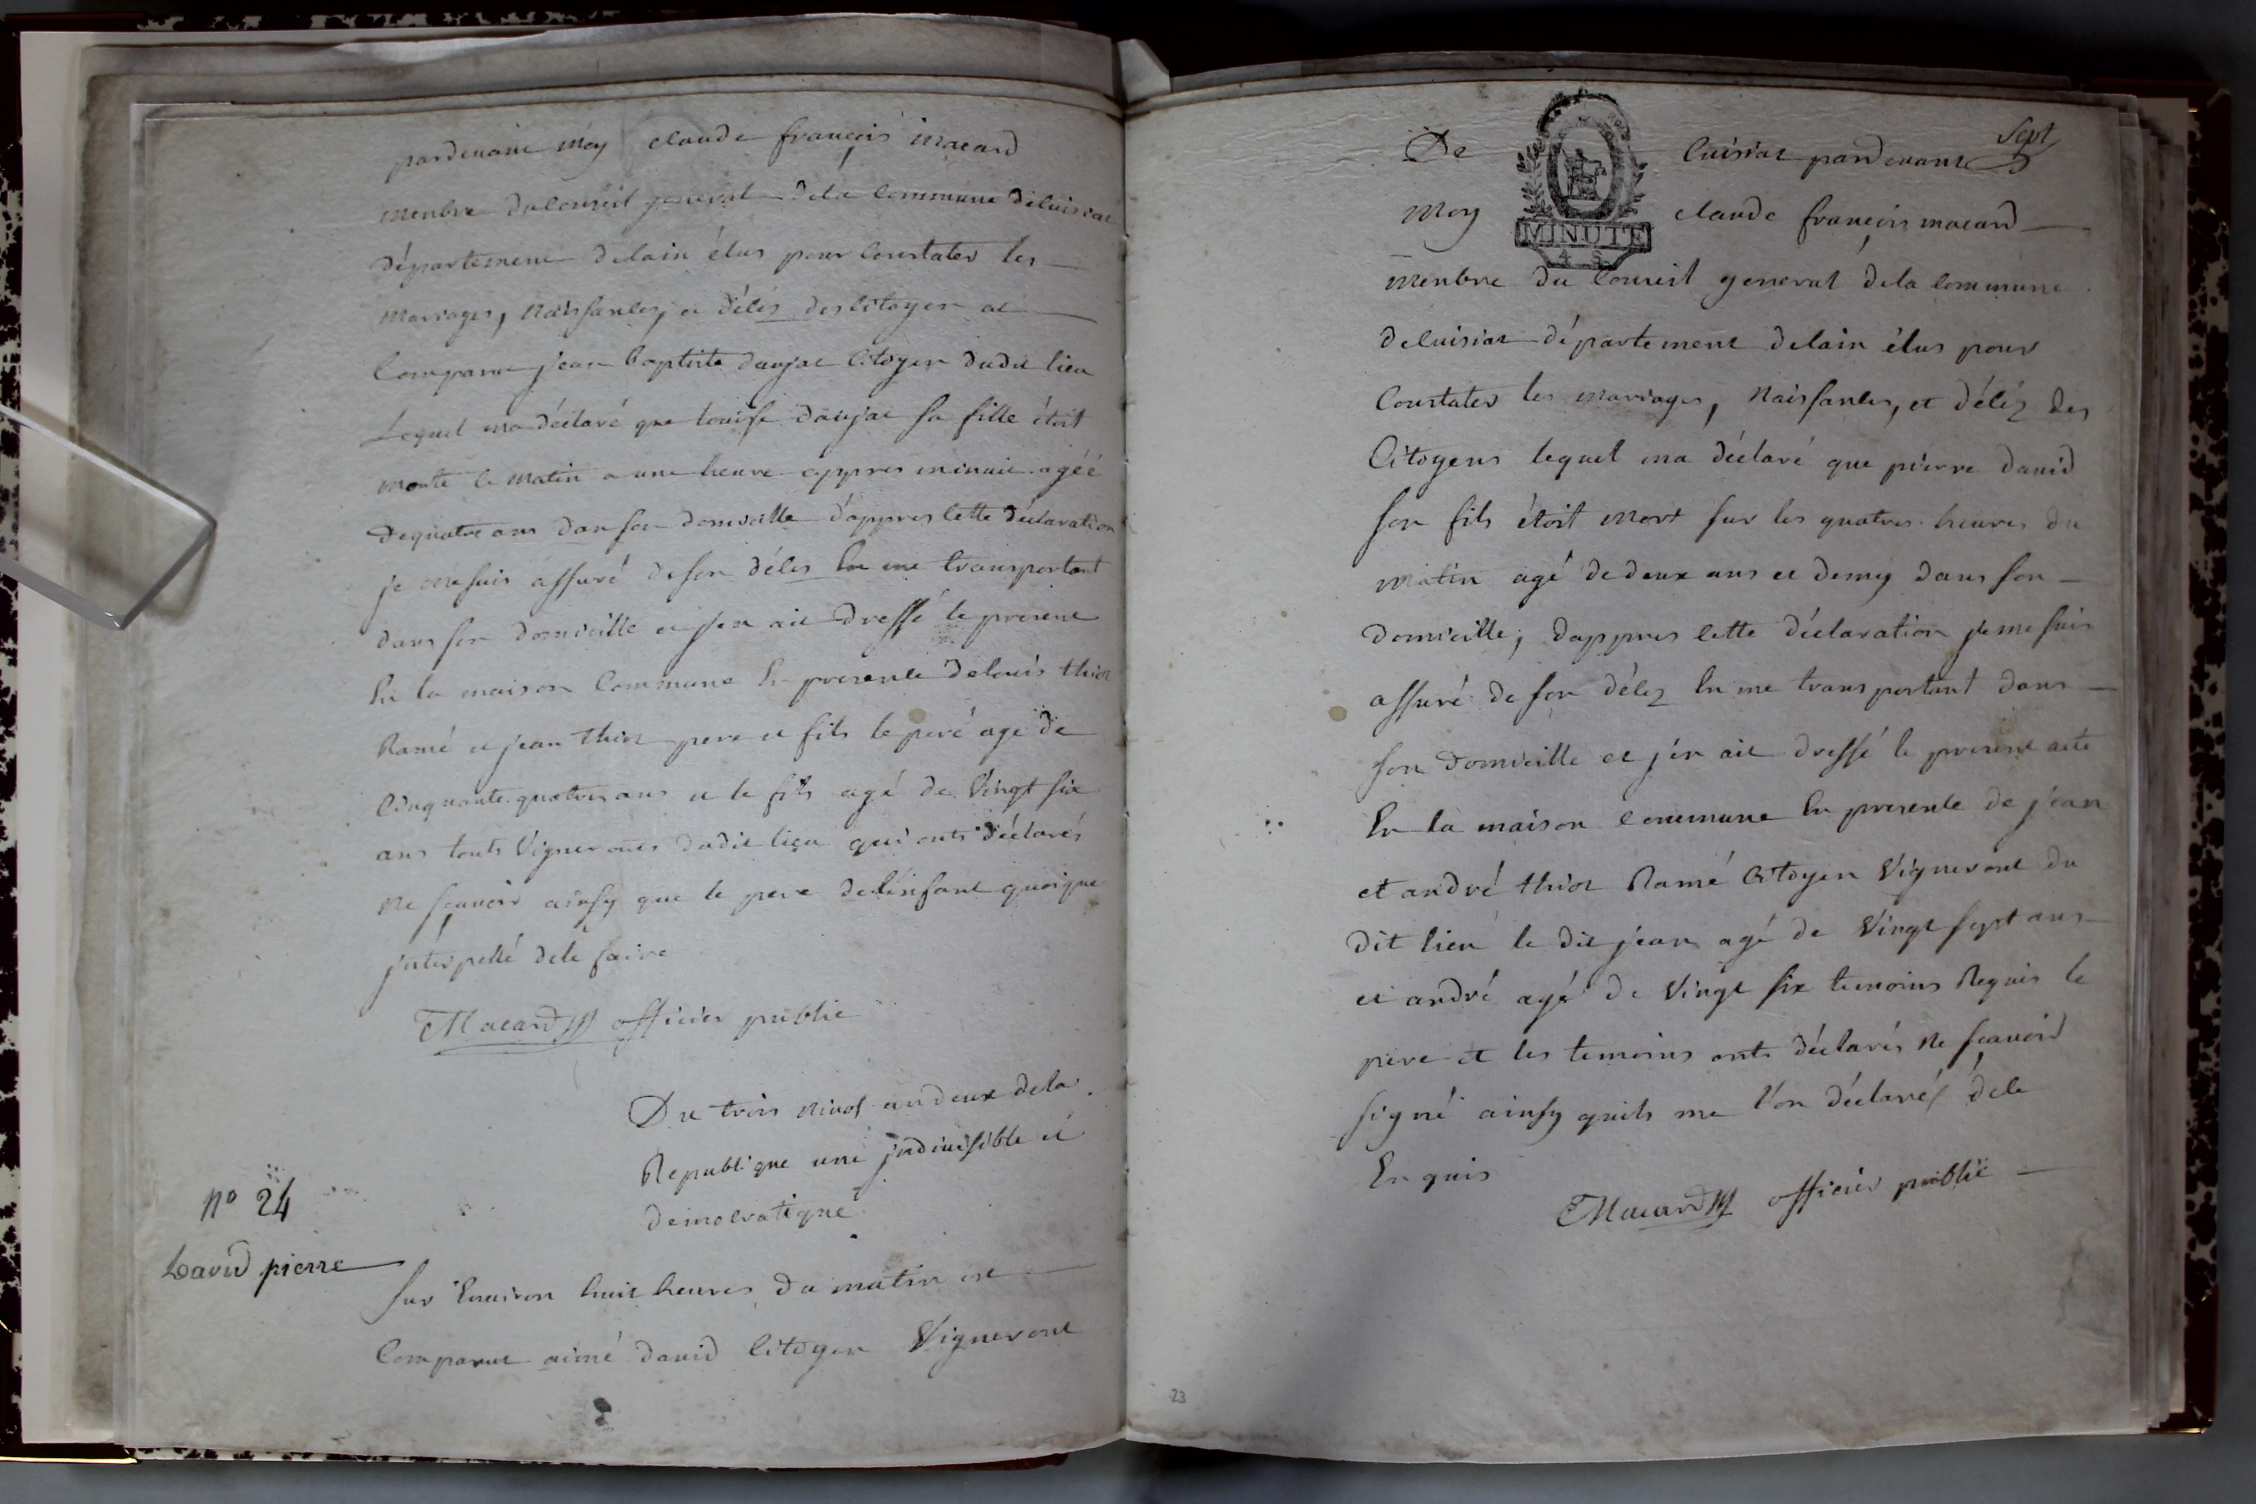 pardevant moy claude françois macard
menbre du Conseil general dela Commune de Cuisiat
département delain élus pour Constater les
mariages, Naissances, et délés des Citoyen at
Comparut jean baptiste daujat Citoyen dudit lieu
Lequel ma déclaré que louise daujat sa fille étoit
morte le matin a une heure appres minuit agéé
dequatre ans dan son domicille dappres cette déclaration
je me suis assuré de son délés En me transportant
dans son domicille et jen ait dressé le present
En la maison Commune En presence delouis thion
Ramé et jean thion pere et fils le peré agé de
Cinquante quatres ans et le fils agé de Vingt six
ans touts Vignerons dudit lieu qui onts déclarés
ne sçavoir ainsy que le pere de lénfant quoique
jnterpellé dele faire
Macard officier public
Du trois nivos an deux dela
Republique une jndivisible et
democratique
no 24
David pierre
sur Environ huit heures du matin est
Comparut aimé david Citoyen Vigneront
Sept
De Cuisiat pardevant
moy claude françois macard
MINUTE
4 S
menbre du Conseil general dela Commune
de Cuisiat département delain élus pour
Constater les mariages, Naissances, et déléz des
Citoyens lequel ma déclaré que pierre david
son fils étoit mort sur les quatres heures du
matin agé de deux ans et demy dans son
domicille, dappres cette déclaration je me suis
assuré de son déléz En me transportant dans
son domicille et jén ait dressé le present acte
En la maison Commune En presence de jean
et andré thion Ramé Citoyen Vigneront du
dit lieu le dit jean agé de Vingt sept ans
et andré agé de Vingt six temoins Requis le
pere et les temoins onts déclarés ne sçavoir
signé ainsy quils me l'on déclarés dele
Enquis
Macard officier public
23